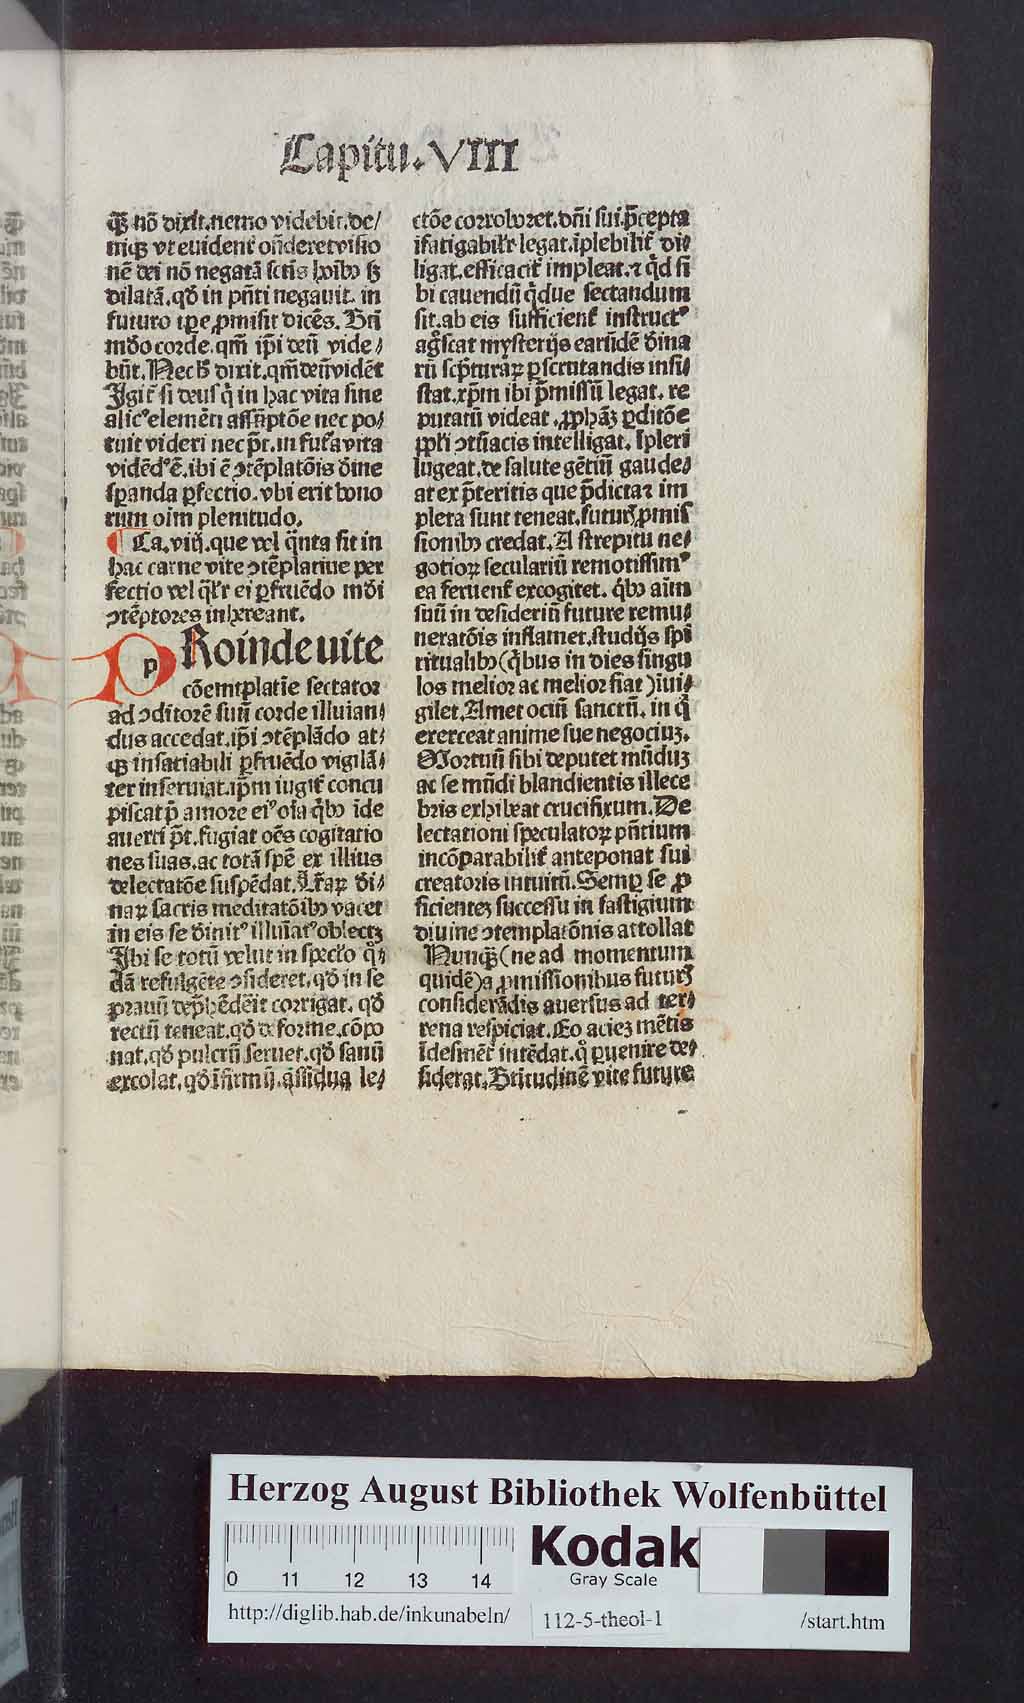 Capitu. VIII
qꝫ nō dixit. nemo videbit. de/
niqꝫ vt euident᷑ oñderet visio
nē dei nō negatā sctis hoībꝰ sꝫ
dilatā. qď in pñti negauit. in
futuro ipe ꝓmisit dicēs. Bti
mūdo corde. qm̄ ip̄i deū vide/
būt. Nec hͦ dixit. qm̄ deū vidēt
Igit᷑ si deus qͥ in hac vita sine
alicꝰ elemēti assūptōe nec po/
tuit videri nec pōt. in fut᷑a vita
vidēdꝰ ē. ibi ē ꝯtēplatōis diuine
sperāda ꝑfectio. vbi erit bono
rum oīm plenitudo.
Ca. viij. que vel qͣnta sit in
hac carne vite ꝯtēplatiue per
fectio vel qͣlr̄ ei ꝑfruēdo mūdi
ꝯtēptores inhereant.
pRoinde uite
cōemtplatīe sectator
ad ꝯditorē suū corde illuian/
dus accedat. ip̄i ꝯtēplādo at/
qꝫ insatiabili ꝑfruēdo vigilā/
ter inseruiat. ip̄m iugit᷑ concu
piscat p̄ amore eiꝰ oīa qͥbꝰ īde
auerti pōt. fugiat oēs cogitatio
nes suas. ac totā spē ex illius
delectatōe suspēdat. Lr̄aꝝ di/
naꝝ sacris meditatōibꝰ vacet
in eis se diuinitꝰ illuīatꝰ oblectꝫ
Ibi se totū velut in speclo qͦ/
dā refulgēte ꝯsideret. qď in se
prauū dep̄hēderit corrigat. qď
rectū teneat. qď deforme. cōpo
nat. qď pulcrū seruet. qď sanū
excolat. qď īfirmū. assidua le/
ctōe corroboret. dn̄i sui p̄cepta
īfatigabilr̄ legat. īplebilit᷑ di/
ligat. efficacit᷑ impleat. ⁊ qͥd si
bi cauendū qͥdue sectandum
sit. ab eis sufficient᷑ instructꝰ
agͦscat mysterijs earūdē diuina
rū scp̄turaꝝ ꝑscrutandis insi/
stat. xp̄m ibi p̄missū legat. re
putatū videat. ꝓphāꝫ ꝑditōe
ppl̄i ꝯtūacis intelligat. Ipleri
lugeat. de salute gētiū gaude/
at ex p̄teritis que p̄dicta ⁊ im
pleta sunt teneat. futurꝫ ꝓmis
sionibꝰ credat. A strepitu ne/
gotioꝝ seculariū remotissimꝰ
ea feruent᷑ excogitet. qͥbꝰ aīm
suū in desideriū future remu/
neratōis inflamet. studijs spi
ritualibꝰ (qͥbus in dies singu
los melior ac melior fiat) īui/
gilet. Amet ociū sanctū. in qͦ
exerceat anime sue negociuꝫ.
Mortuū sibi deputet mūduꝫ
ac se mūdi blandientis illece
bris exhibeat crucifixum. De
lectationi speculatoꝝ pn̄tium
incōparabilit᷑ anteponat sui
creatoris intuitū. Semꝑ se ꝓ
ficienteꝫ successu in fastigium
diuine ꝯtemplatōnis attollat
Nunqꝫ (ne ad momentum
quidē) a ꝓmissionibus futurꝫ
considerādis auersus ad ter/
rena respiciat. Eo acieꝫ mētis
īdesinēt᷑ intēdat. qͦ ꝑuenire de/
siderat. Btitudinē vite future
Herzog August Bibliothek Wolfenbüttel
0 11 12 13 14
Kodak
Gray Scale
http://diglib.hab.de/inkunabeln/ 112-5-theol-1 /start.htm